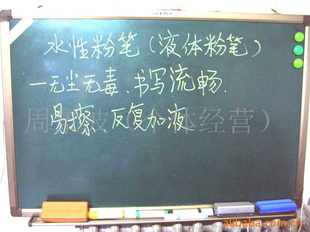 水性粉笔(液体粉笔)
一无尘无毒、书写流畅.
易擦 反复加液